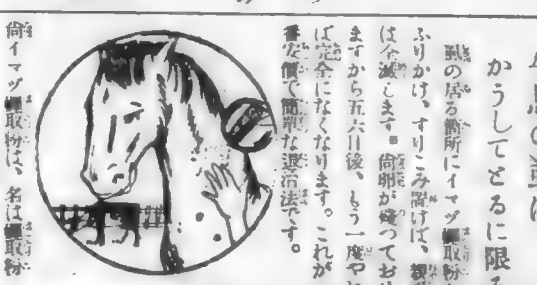 かうしてとるに限る
虱の居る箇所にイマヅ蠅取粉を
ふりかけ、すりこみ置けば、親虱
は全滅します。尚卵が殘つており
ますから五六日後、もう一度やれ
ば完全になくなります。これが一
番安價で簡單な退治法です。
尚イマヅ蠅取粉は、名は蠅取粉